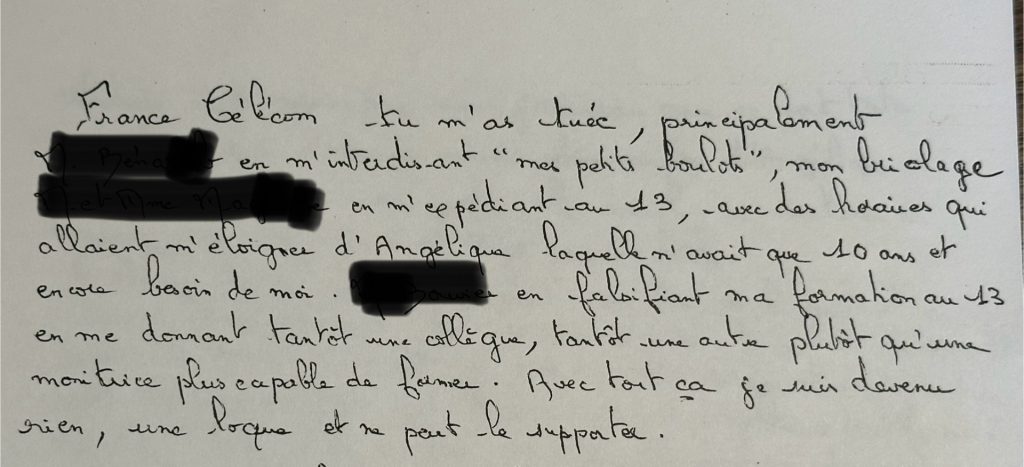 France Télécom tu m'as tuée, principalement
en m'interdisant "mes petits boulots", mon bricolage
en m'expédiant au 13, avec des horaires qui
allaient m'éloigner d'Angélique laquelle n'avait que 10 ans et
encore besoin de moi. en falsifiant ma formation au 13
en me donnant tantôt une collègue, tantôt une autre plutôt qu'une
monitrice plus capable de former. Avec tout ça je suis devenu
rien, une loque et ne peut le supporter.